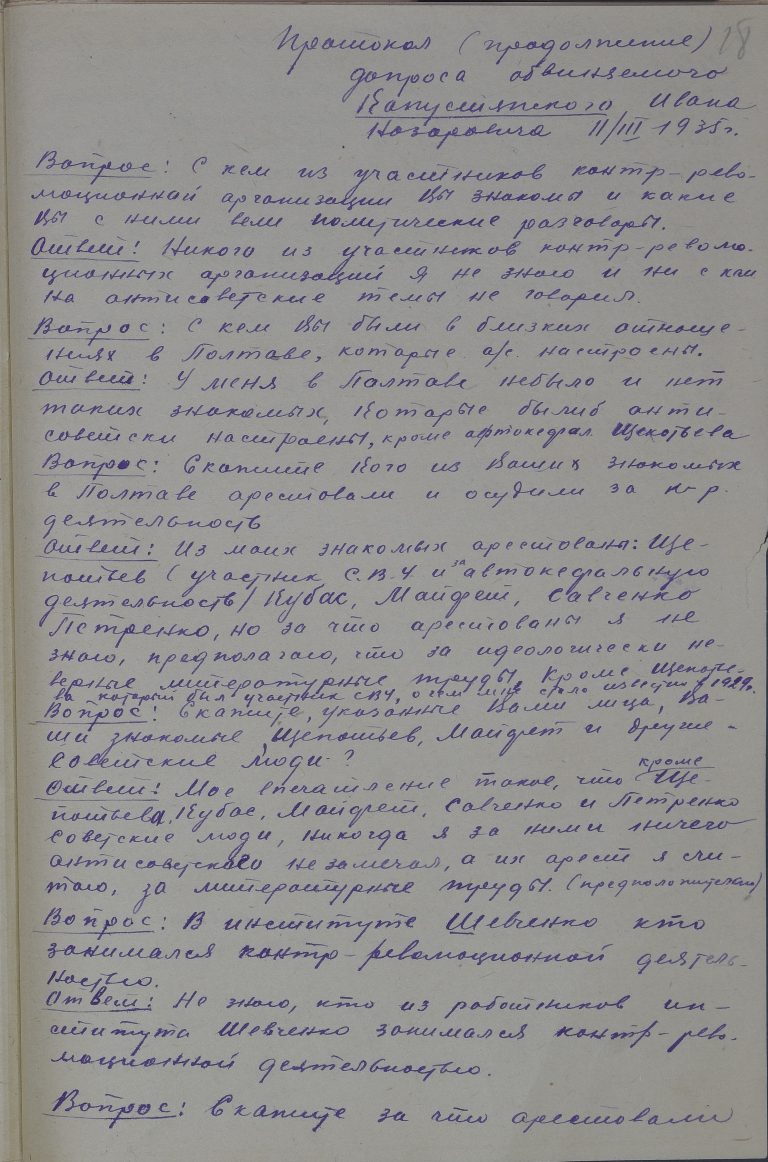 Протокол (продолжение) 18
допроса обвиняемого
Капустянского Ивана
Назаровича 11/III 1935г.
Вопрос: С кем из участников контр-рево-
люционной организации Вы знакомы и какие
Вы с ними вели политические разговоры.
Ответ: Никого из участников контр-револю-
ционных организаций я не знаю и ни с кем
на антисоветские темы не говорил.
Вопрос: С кем Вы были в близких отноше-
ниях в Полтаве, которые а/с. настроены.
Ответ: У меня в Полтаве небыло и нет
таких знакомых, которые были б анти-
советски настроены, кроме автокефал. Щепотьева
Вопрос: Скажите кого из Ваших знакомых
в Полтаве арестовали и осудили за к-р.
деятельность
Ответ: Из моих знакомых арестованы: Ще-
потьев (участник С.В.У. и за автокефальную
деятельность) Кубас, Майфет, Савченко
Петренко, но за что арестованы я не
знаю, предполагаю, что за идеологически не-
верные литературные труды, кроме Щепотье-
ва который был участник СВУ, о чем мне стало известно в 1929г.
Вопрос: Скажите, указанные Вами лица, Ва-
ши знакомые Щепотьев, Майфет и другие -
Советские люди?
Ответ: Мое впечатление такое, что кроме Ще-
потьева, Кубас, Майфет, Савченко и Петренко
советские люди, никогда я за ними ничего
антисоветского не замечал, а их арест я счи-
таю, за литературные труды. (предположительно)
Вопрос: В институте Шевченко кто
занимался контр-революционной деятель-
ностью.
Ответ: Не знаю, кто из работников ин-
ститута Шевченко занимался контр-рево-
люционной деятельностью.
Вопрос: Скажите за что арестовали